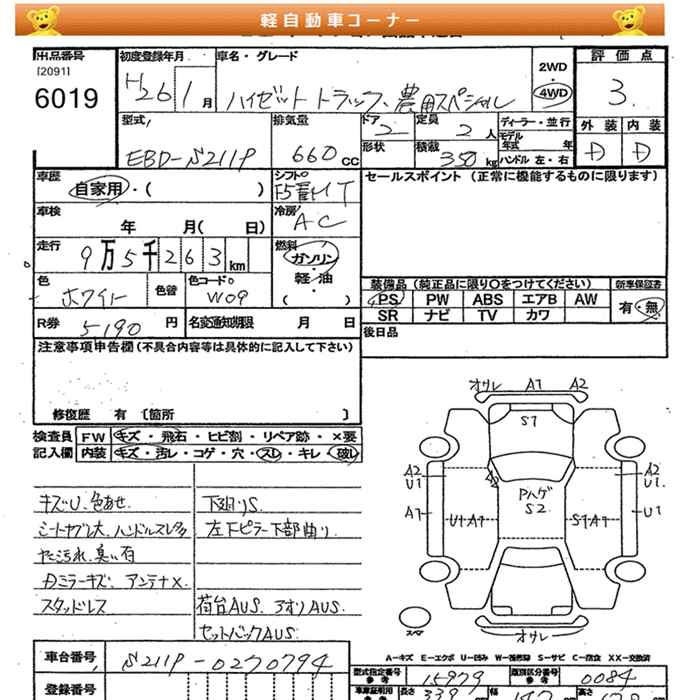 軽自動車コーナー
出品番号 初度登録年月 車名・グレード 評価点
[2091]
6019
H26 1月 ハイゼット トラック、農用スペシャル 2WD・4WD 3.
型式 排気量 ドア 定員 ディーラー・並行 外装 内装
EBD-S211P 660cc 2 2人 モデル年式 年 D D
形状 積載 350kg ハンドル 左・右
車歴 シフト セールスポイント (正常に機能するものに限ります)
自家用・( ) F5 MT
車検 冷房
年 月( 日) AC
走行 燃料
9万5千263km ガソリン・
色 色替 色コードNo 軽・油・
ホワイト W09 ( )
装備品 (純正品に限り○をつけてください) 新車保証書
PS PW ABS エアB AW 有・無
SR ナビ TV カワ
R券 5190円 名変通知期限 月 日
後日品
注意事項申告欄 (不具合内容等は具体的に記入して下さい)
修復歴 有 [箇所 ]
検査員 FW キズ・飛石・ヒビ割・リペア跡・×要
記入欄 内装 キズ・汚レ・コゲ・穴・スレ・キレ・破レ
キズU、色あせ、 下廻りS
シートヤブレ大、ハンドルスレ多 左下ピラー下部曲り
汚れ、臭い有
Dミラーキズ、アンテナX
スタッドレス 荷台AUS、アオリAUS、
セットバックAUS
オサレ A1 A2
S1
A2
U1 A2 A2
U1
Pハゲ
S2
A1 U1A1 S1A1 U1
スペア オサレ
A-キズ E-エクボ U-凹み W-補修跡 S-サビ C-腐食 XX-交換済
車台番号 S211P-0270794
型式指定番号 参考 15979 類別区分番号 参考 0084
登録番号
車庫証明用 参考 長さ 339 幅 147 高さ